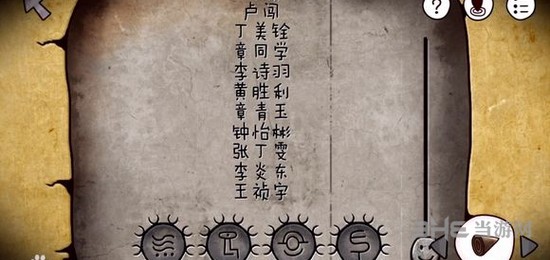 ?
卢闯
丁美铨
章同学
李诗羽
黄胜利
章青玉
钟怡彬
张丁雯
李炎东
王祯宇
当游网